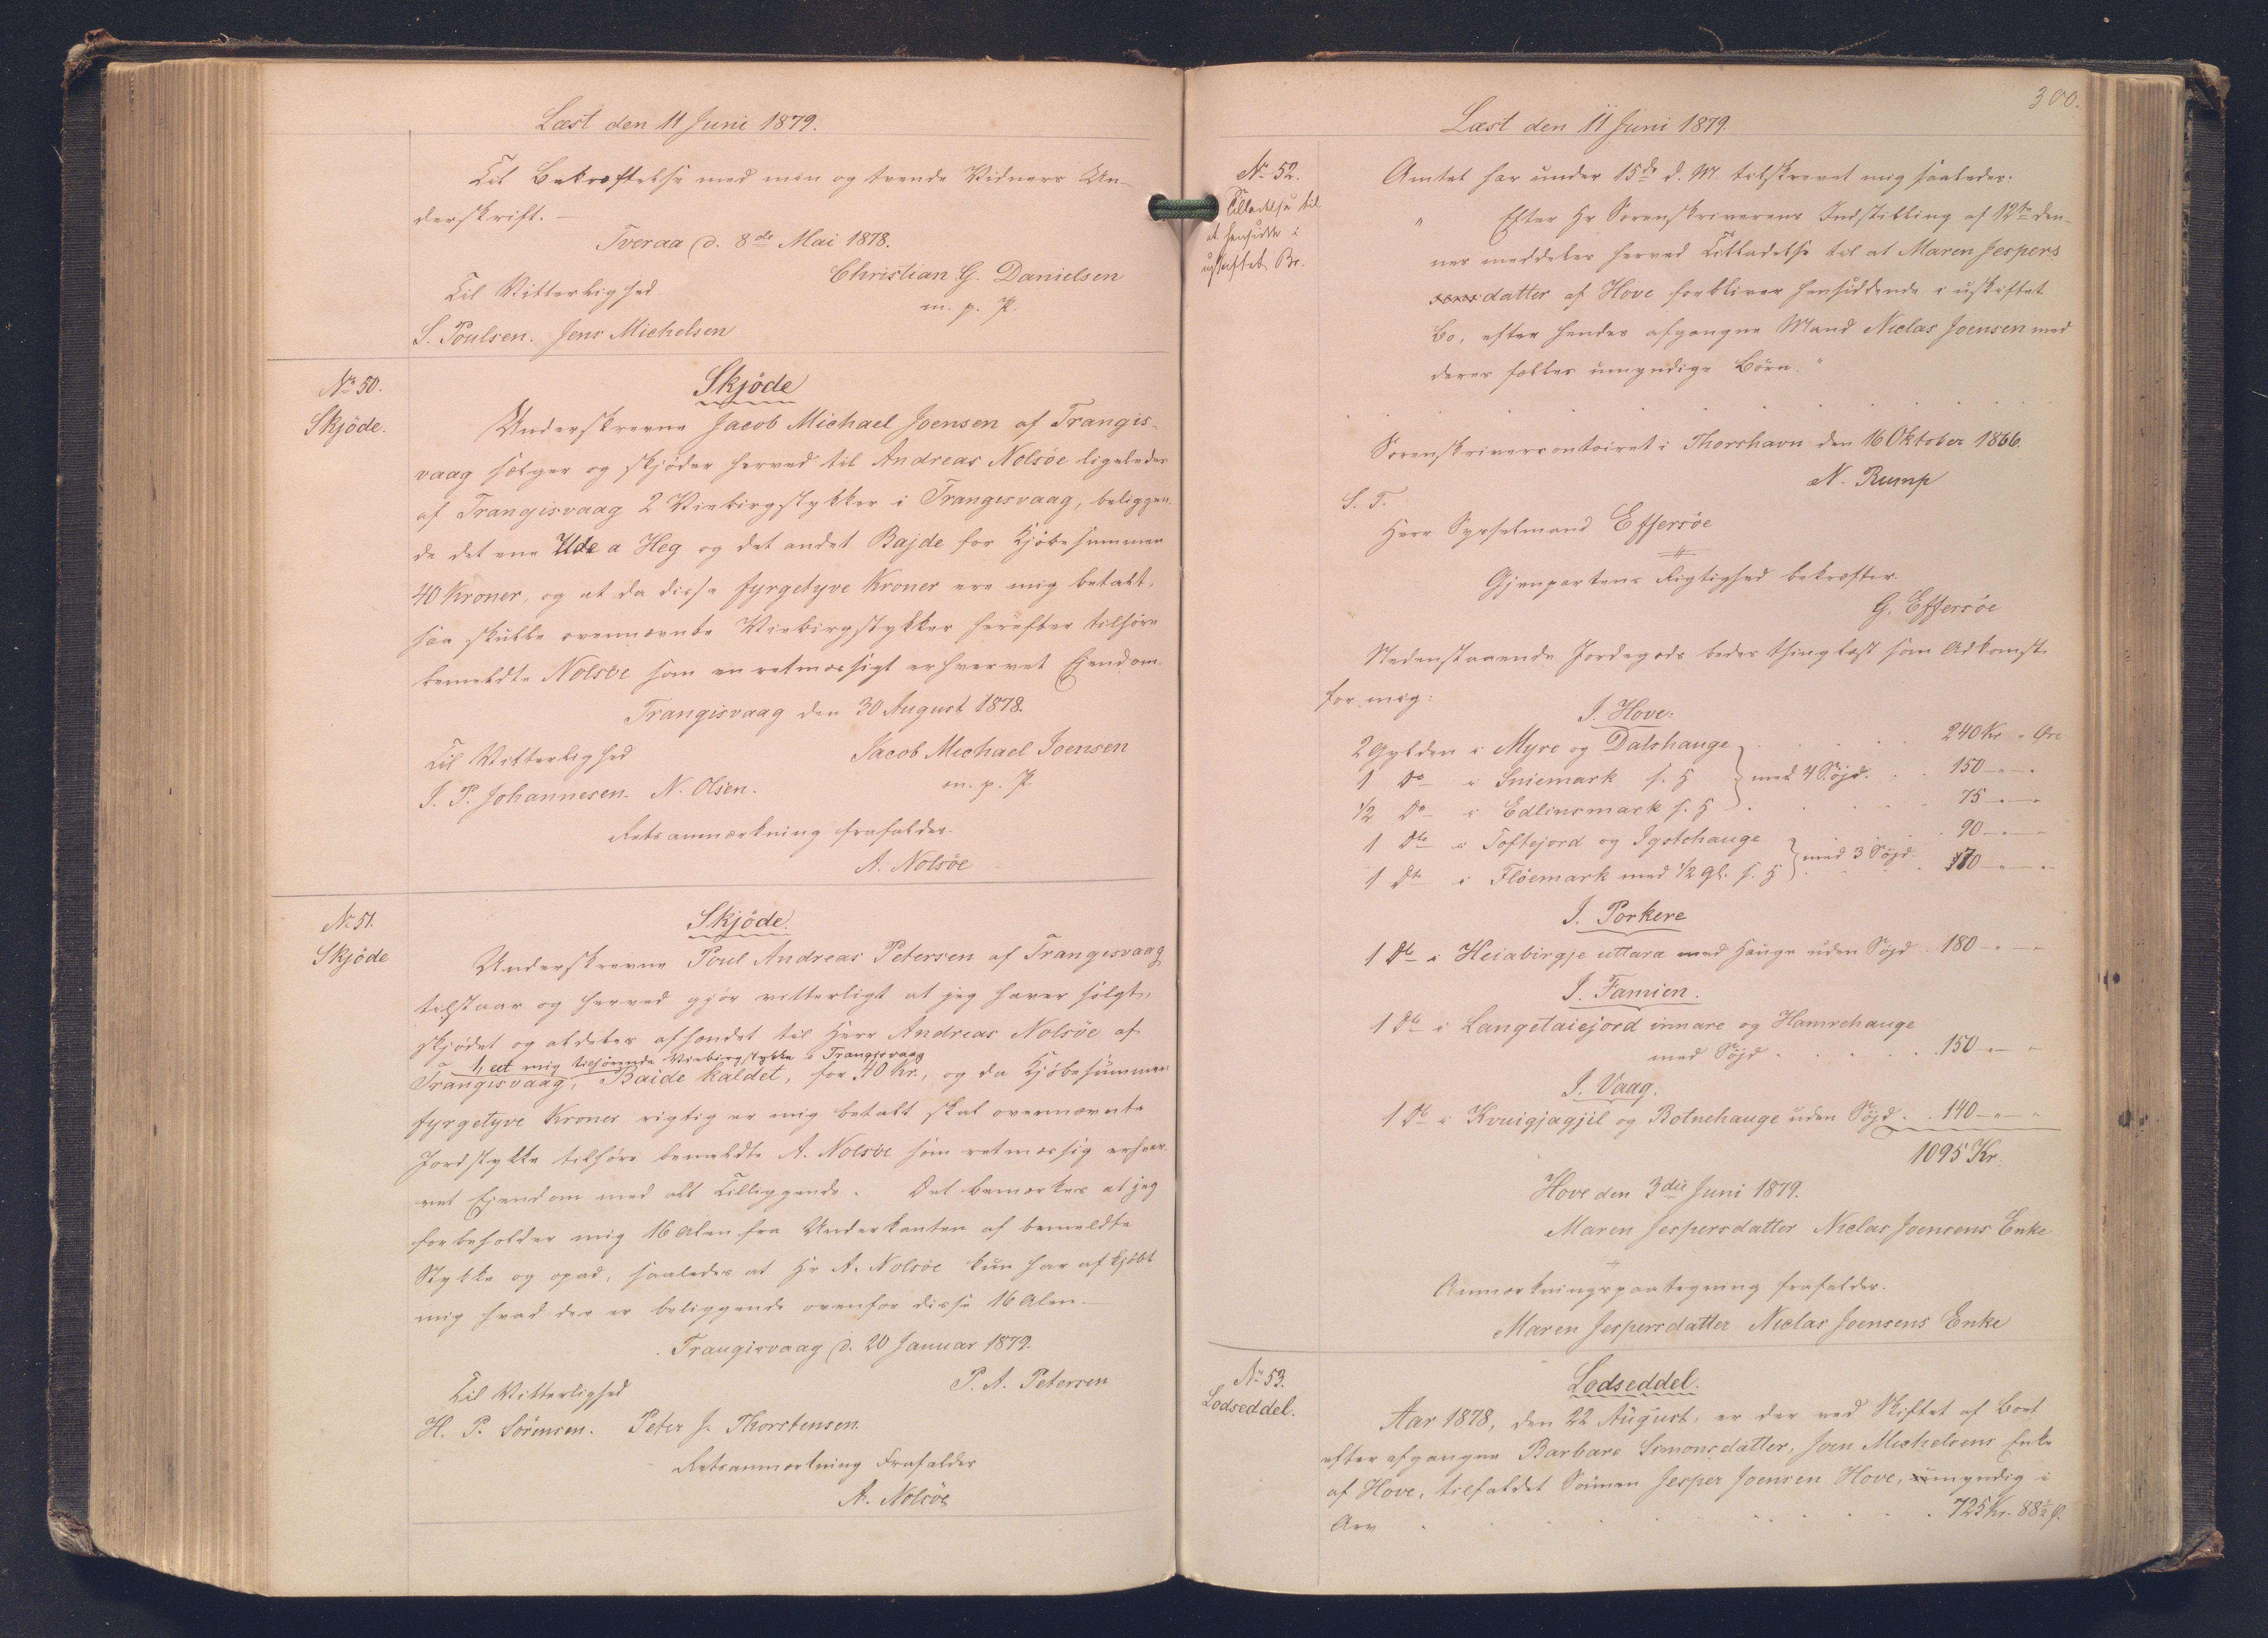 Læst den 11 Juni 1879.
Til Bekræftelse med min og tvende Vidners Un-
derskrift. —
Tveraa d. 8de Mai 1878.
Christian G. Danielsen
m. p. P.
Til Vitterlighed.
S. Poulsen. Jens Michelsen
No 50.
Skjöde.
Skjöde
Underskrevne Jacob Michael Joensen af Trangis-
vaag sælger og skjøder herved til Andreas Nolsöe ligeledes
af Trangisvaag 2 Viebirgstykker i Trangisvaag, beliggen-
de det ene Ude a Heg og det andet Bajde for Kjöbesummen
40 Kroner, og at da disse fyrgetyve Kroner ere mig betalt,
saa skulle ovennævnte Viebirgstykker herefter tilhøre
bemeldte Nolsöe som en retmæssigt erhvervet Ejendom.
Trangisvaag den 30 August 1878.
Til Vitterlighed
Jacob Michael Joensen
m. p. P.
J. P. Johannesen. N. Olsen.
Retsanmærkning frafaldes.
A. Nolsöe
No 51.
Skjöde
Skjöde.
Underskrevne Poul Andreas Petersen af Trangisvaag
tilstaar og herved gjör vitterligt at jeg haver solgt,
skjödet og aldeles afhændet til Herr Andreas Nolsöe af
1, eet mig tilhörende Viebirgstykke i Trangisvaag
Trangisvaag, Baide kaldet, for 40 Kr., og da Kjöbesummen
fyrgetyve Kroner rigtig er mig betalt skal ovennævnte
Jordstykke tilhöre bemeldte A. Nolsöe som retmæssig erhver-
vet Ejendom med alt Tilliggende. Det bemærkes at jeg
forbeholder mig 16 Alen fra Underkanten af bemeldte
Stykke og opad, saaledes at Hr A. Nolsöe kun har afkjöbt
mig hvad der er beliggende ovenfor disse 16 Alen —
Trangisvaag d. 20 Januar 1879.
Til Vitterlighed
P. A. Petersen
H. P. Sörensen. Peter J. Thorstensen.
Retsanmærkning Frafaldes
A. Nolsöe
300.
Læst den 11 Juni 1879.
No 52.
Tilladelse til
at hensidde i
uskiftet Bo.
Amtet har under 15de d. M. tilskrevet mig saaledes:
" Efter Hr Sorenskriverens Indstilling af 12te den-
nes meddeles herved Tilladelse til at Maren Jespers-
datter af Hove forbliver hensiddende i uskiftet
Bo, efter hendes afgangne Mand Niclas Joensen med
deres fælles umyndige Börn."
Sorenskrivercontoiret i Thorshavn den 16 Oktober 1866.
N. Rump
S. T.
Herr Sysselmand Effersöe
Gjenpartens Rigtighed bekræfter.
G. Effersöe
Nedenstaaende Jordegods bedes thinglæst som Adkomst
for mig:
I. Hove:
2 Gylden i Myre og Dalshauge . . . 240 Kr " Øre
1 Do i Sniemark s. H } med 4 Söjd. . . 150 — " — "
1/2 Do i Edlinsmark s. H . . . 75 — " — "
1 Dto i Toftejord og Igstehauge . . . 90 — " — "
1 Dto i Flöemark med 1/2 Gl. s. H } med 3 Söjd. . . 70 — " — "
I. Porkere
1 Dto i Heiabirgje uttara med Hauge uden Söjd . 180 — " — "
I. Famien.
1 Dto i Langetaiejord innare og Hamrehauge
med Söjd . . . 150 — " — "
I. Vaag.
1 Dto i Kvuigjagjil og Botnehauge uden Söjd . . 140 — " — "
1095 Kr.
Hove den 3die Juni 1879.
Maren Jespersdatter Niclas Joensens Enke
Anmærkningspaategning frafaldes.
Maren Jespersdatter Niclas Joensens Enke
No 53.
Lodseddel.
Lodseddel.
Aar 1878, den 22 August, er der ved Skiftet af Boet
efter afgangne Barbare Simonsdatter, Joen Michelsens Enke
af Hove, tilfaldet Sönnen Jesper Joensen Hove, myndig i
Arv . . . 725 Kr. 88 1/2 Ø.